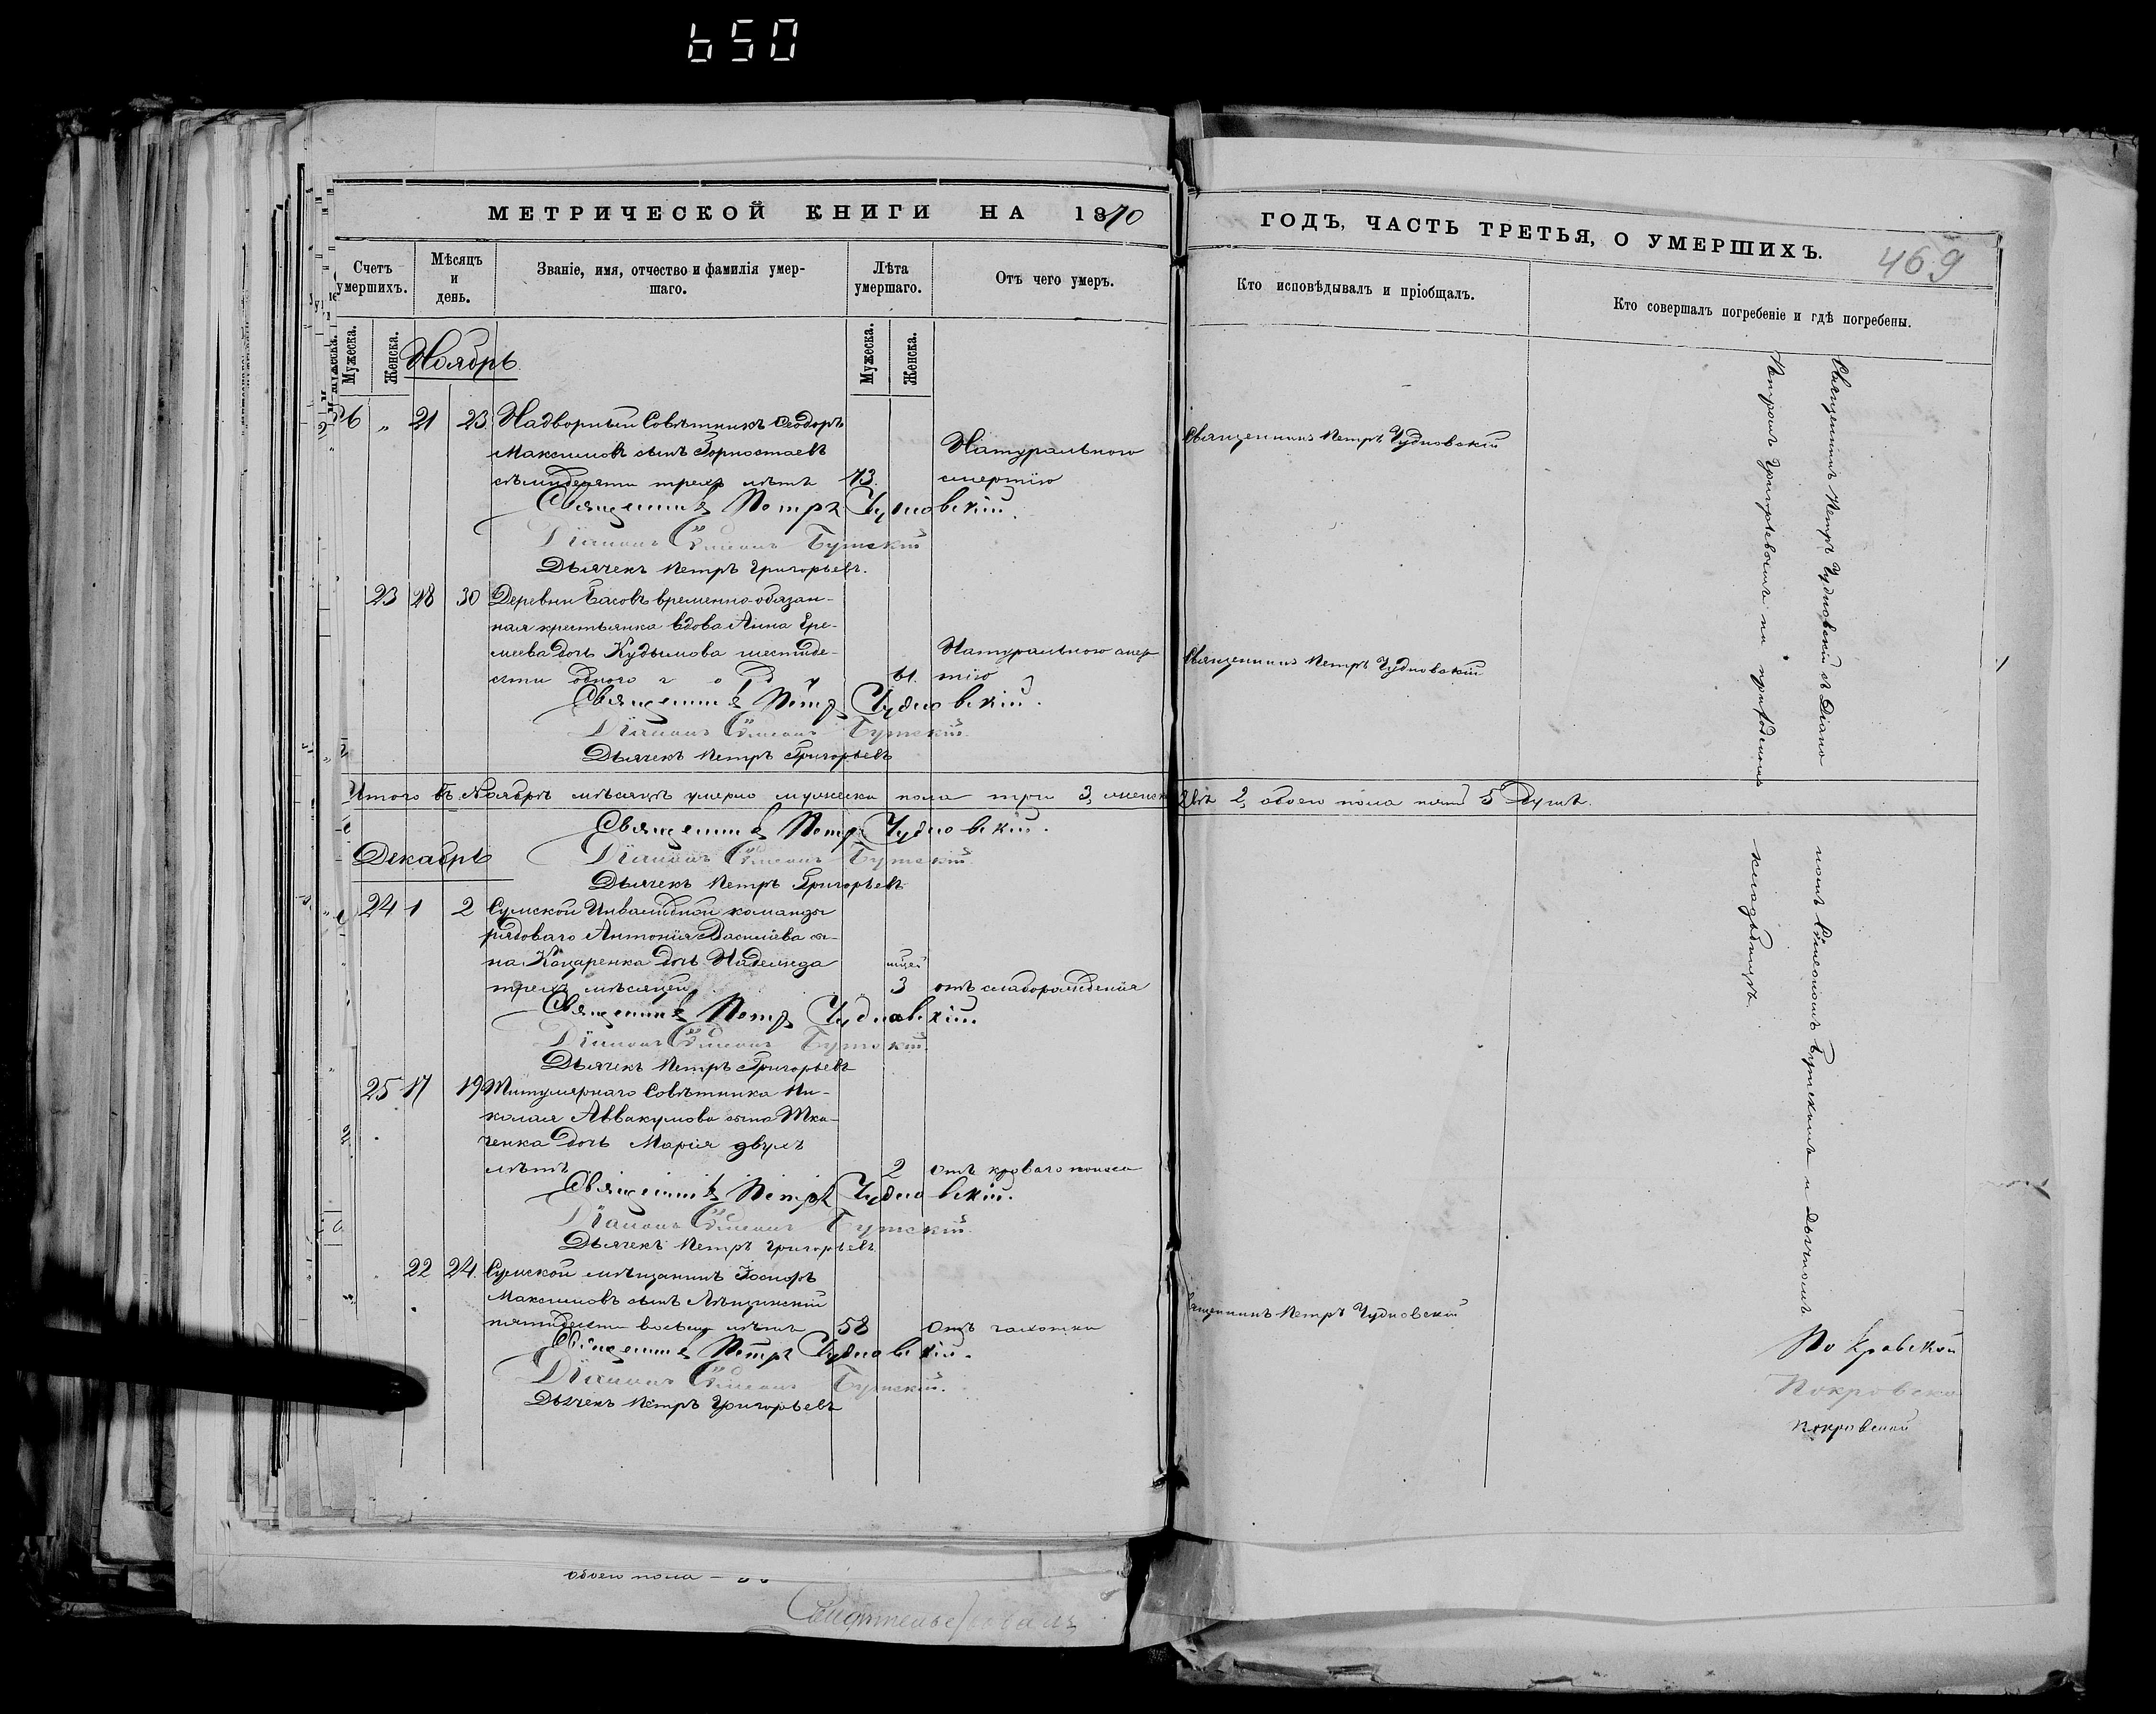 650
МЕТРИЧЕСКОЙ КНИГИ НА 1870
ГОДЪ, ЧАСТЬ ТРЕТЬЯ, О УМЕРШИХЪ.
469
Счетъ умершихъ.
Мѣсяцъ и день.
Званіе, имя, отчество и фамилія умер-
шаго.
Лѣта умершаго.
Отъ чего умеръ.
Кто исповѣдывалъ и пріобщалъ.
Кто совершалъ погребеніе и гдѣ погребены.
Мужеска.
Женска.
Мужеска.
Женска.
Ноябрь
26 „ 21 23 Надворный Совѣтникъ Ѳеодоръ
Максимовъ сынъ Горностаевъ
Натуральною
Священникъ Петръ Чудновскій
семидесяти трехъ лѣтъ 73. смертію
Священникъ Петръ Чудновскій.
Діаконъ Сѵмеонъ Бутскій
Дьячекъ Петръ Григорьевъ.
23 28 30 Деревни Басовъ временно-обязан-
ная крестьянка вдова Анна Ере-
меева дочь Кудымова шестиде-
Натуральною смер-
Священникъ Петръ Чудновскій
сяти одного году 61. тію
Священникъ Петръ Чудновскій.
Діаконъ Сѵмеонъ Бутскій
Дьячекъ Петръ Григорьевъ
Итого въ Ноябрѣ мѣсяцѣ умерло мужеска пола три 3, женска двѣ 2, обоего пола пять 5 душъ.
Священникъ Петръ Чудновскій.
Декабрь
Діаконъ Сѵмеонъ Бутскій
Дьячекъ Петръ Григорьевъ
24 1 2 Сумской Инвалидной команды
рядоваго Антонія Василіева сы-
на Коцаренка дочь Надежда
мцей
трехъ мѣсяцей 3 отъ слаборожденія
Священникъ Петръ Чудновскій.
Діаконъ Сѵмеонъ Бутскій
Дьячекъ Петръ Григорьевъ
25 17 19 Титулярнаго Совѣтника Ни-
колая Аввакумова сына Тка-
ченка дочь Марія двухъ
лѣтъ 2 отъ кроваго поноса
Священникъ Петръ Чудновскій.
Діаконъ Сѵмеонъ Бутскій
Дьячекъ Петръ Григорьевъ
22 24. Сумской мѣщанинъ
Максимовъ сынъ
пятидесяти восьми лѣтъ 58 отъ чахотки
Священникъ Петръ Чудновскій
Священникъ Петръ Чудновскій.
Діаконъ Сѵмеонъ Бутскій.
Дьячекъ Петръ Григорьевъ
Священникъ Петръ Чудновскій съ Діако-
номъ Сѵмеономъ Бутскимъ и дьячкомъ
Петромъ Григорьевымъ на приходскомъ
кладбищѣ.
Покровской
Покровской
Покровской
обоего пола —
Свидѣтельствовалъ